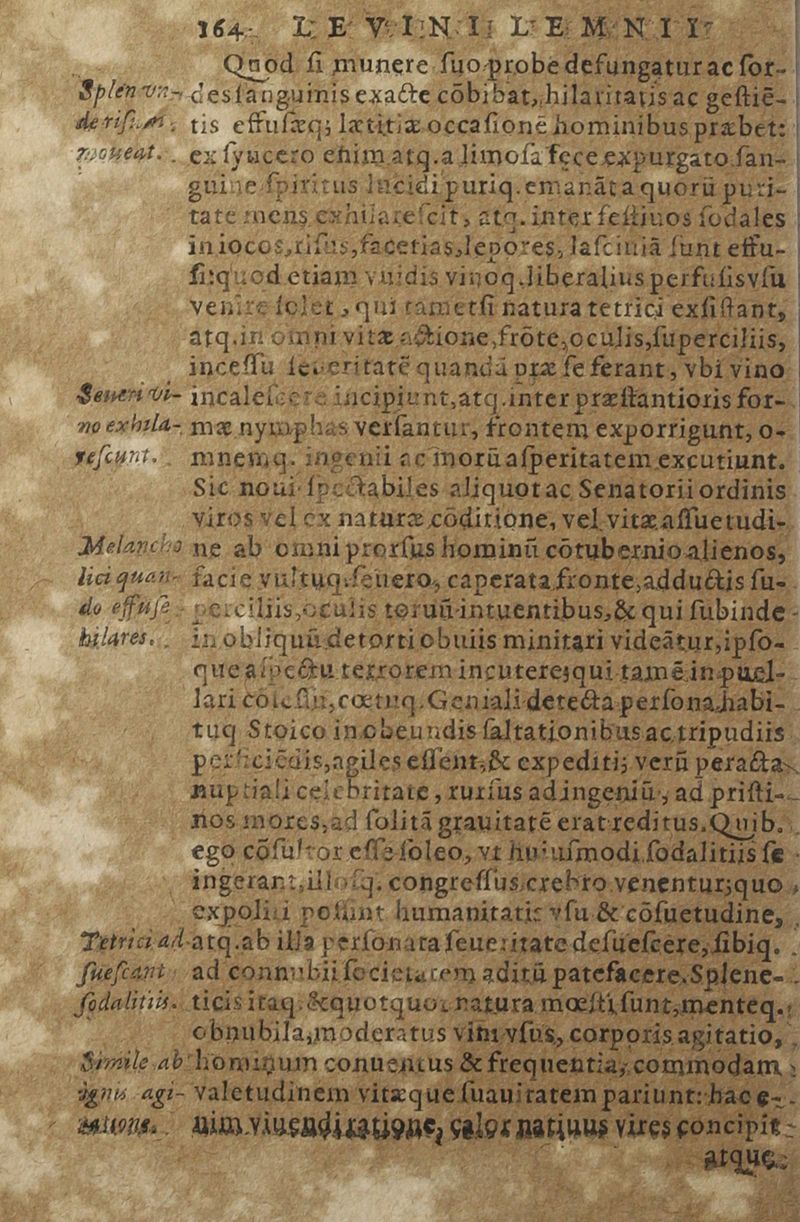 164. LEVINII LEMNII
Quod ſi munere ſuo probe defungatur ac ſor-
Splen vn- des ſanguinis exacte cōbibat, hilaritatis ac geſtiē-
de riſum tis effuſæq; lætitiæ occaſionē hominibus præbet:
moueat. ex ſyncero enim atq. a limoſa fece expurgato ſan-
guine ſpiritus lucidi puriq. emanāt a quorū puri-
tate mens exhilareſcit, atq. inter feſtiuos ſodales
in iocos, riſus, facetias, lepores, laſciuiā ſunt effu-
ſi: quod etiam vuidis vinoq. liberalius perfuſis vſu
venire ſolet, qui tametſi natura tetrici exſiſtant,
atq. in omni vitæ actione, frōte, oculis, ſuperciliis,
inceſſu ſeueritatē quandā præ ſe ferant, vbi vino
Seueri vi- incaleſcere incipiunt, atq. inter præſtantioris for-
no exhila- mæ nymphas verſantur, frontem exporrigunt, o-
reſcunt. mnemq. ingenii ac morū aſperitatem excutiunt.
Sic noui ſpectabiles aliquot ac Senatorii ordinis
viros vel ex naturæ cōditione, vel vitæ aſſuetudi-
Melancho ne ab omni prorſus hominū cōtubernio alienos,
lici quan- facie vultuq. ſeuero, caperata fronte, adductis ſu-
do effuſe perciliis, oculis toruū intuentibus, & qui ſubinde
hilares. in obliquū detorti obuiis minitari videātur, ipſo-
que aſpectu terrorem incutere; qui tamē in puel-
lari cōſeſſu, cœtuq. Geniali detecta perſona, habi-
tuq Stoico in obeundis ſaltationibus ac tripudiis
perficiēdis, agiles eſſent, & expediti; verū peracta
nuptiali celebritate, rurſus ad ingeniū, ad priſti-
nos mores, ad ſolitā grauitatē erat reditus. Quib.
ego cōſultor eſſe ſoleo, vt huiuſmodi ſodalitiis ſe
ingerant, illoſq. congreſſus crebro venentur; quo
expoliri poſſint humanitatis vſu & cōſuetudine,
Tetrici ad- atq. ab illa perſonata ſeueritate deſueſcere, ſibiq.
ſueſcant ad connubii ſocietatem aditū patefacere. Splene-
ſodalitiis. ticis itaq. & quotquot natura mœſti ſunt, menteq.
obnubila, moderatus vini vſus, corporis agitatio,
Simile ab hominum conuentus & frequentia, commodam
ignis agi- valetudinem vitæque ſuauitatem pariunt: hac e-
tatione. nim viuendi ratione, calor natiuus vires concipit
atque